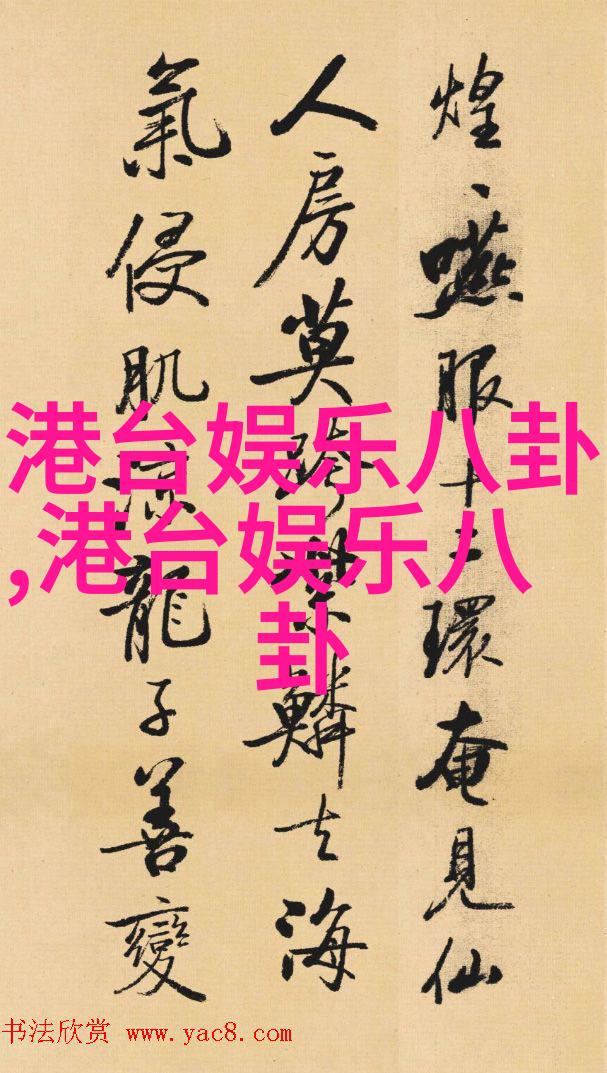 煌〻嚥服十二環奄見仙
人房莫跨紫鱗去海
氣侵肌涼龍子善變
港台娱乐八卦
,港台娱乐八
卦
书法欣赏 www.yac8.com